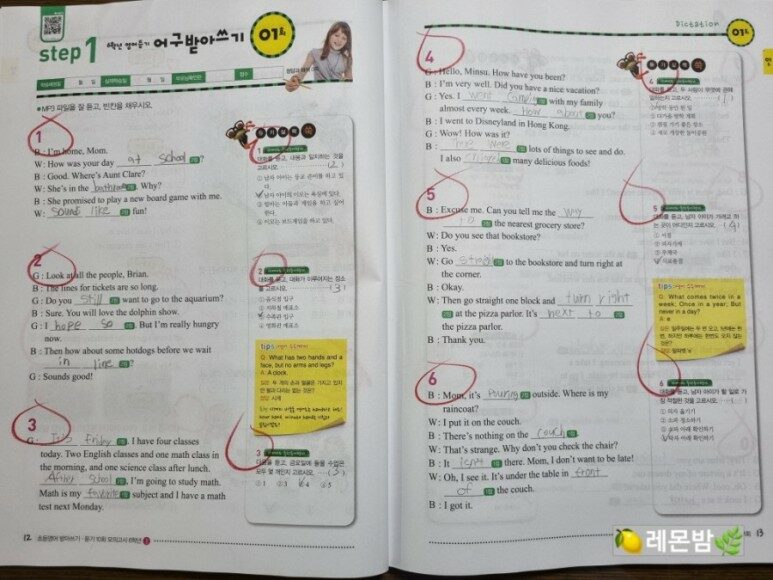 step 1 6학년 영어듣기 어구받아쓰기 01회
월 일
월 일
점수
● MP3 파일을 잘 듣고, 빈칸을 채우시오.
1
B : I'm home, Mom.
W: How was your day at school?
B : Good. Where's Aunt Clare?
W: She's in the bathroom. Why?
B : She promised to play a new board game with me.
W: Sound like fun!
2
G : Look at all the people, Brian.
B : The lines for tickets are so long.
G : Do you still want to go to the aquarium?
B : Sure. You will love the dolphin show.
G : I hope so. But I'm really hungry
now.
B : Then how about some hotdogs before we wait
in line?
G : Sounds good!
3
G : It's friday. I have four classes
today. Two English classes and one math class in
the morning, and one science class after lunch.
After school, I'm going to study math.
Math is my favorite subject and I have a math
test next Monday.
1
대화를 듣고, 내용과 일치하는 것을
고르시오. (2)
2
대화를 듣고, 대화가 이루어지는 장소
를 고르시오. (3)
① 음식점 입구
② 지하철 매표소
③ 수족관 입구
④ 영화관 매표소
tips
Q: What has two hands and a
face, but no arms and legs?
A: A clock.
3
① 3 ② 4 ④ 5
12 초등영어 받아쓰기·듣기 10회 모의고사 6학년 1
Dictation
01회
4
G : Hello, Minsu. How have you been?
B : I'm very well. Did you have a nice vacation?
G : Yes. I went camping with my family
almost every week. How about you?
B : I went to Disneyland in Hong Kong.
G : Wow! How was it?
B : There were lots of things to see and do.
I also many delicious foods!
5
B : Excuse me. Can you tell me the way
to the nearest grocery store?
W : Do you see that bookstore?
B : Yes.
W : Go to the bookstore and turn right at
the corner.
B : Okay.
W : Then go straight one block and turn right
at the pizza parlor. It's next to
the pizza parlor.
B : Thank you.
6
B : Mom, it's pouring outside. Where is my
raincoat?
W : I put it on the couch.
B : There's nothing on the couch.
W : That's strange. Why don't you check the chair?
B : It isn't there. Mom, I don't want to be late!
W : Oh, I see it. It's under the table in front
of the couch.
B : I got it.
4
5
대화를 듣고, 남자 아이가 가려고 하
는 곳이 어디인지 고르시오. (4)
① 서점
② 피자가게
③ 우체국
④ 식료품점
tips
Q: What comes twice in a
week; Once in a year; But
never in a day?
A: e
6
13
🍋 레몬밤🌿